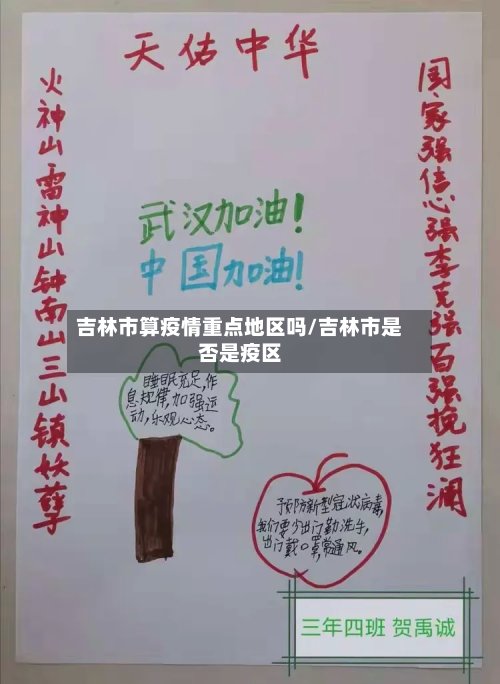 天估中华
火神山雷神山钟南山三山镇妖孽
国家强信心强李克强百强挽狂澜
武汉加油！
中国加油！
吉林市算疫情重点地区吗/吉林市是
否是疫区
睡眠充足,作
息规律,加强运
动,乐观心态。
预防新型冠状病毒,
我们要少出门勤洗手,
出门戴口罩,常通风。
三年四班 贺禹诚